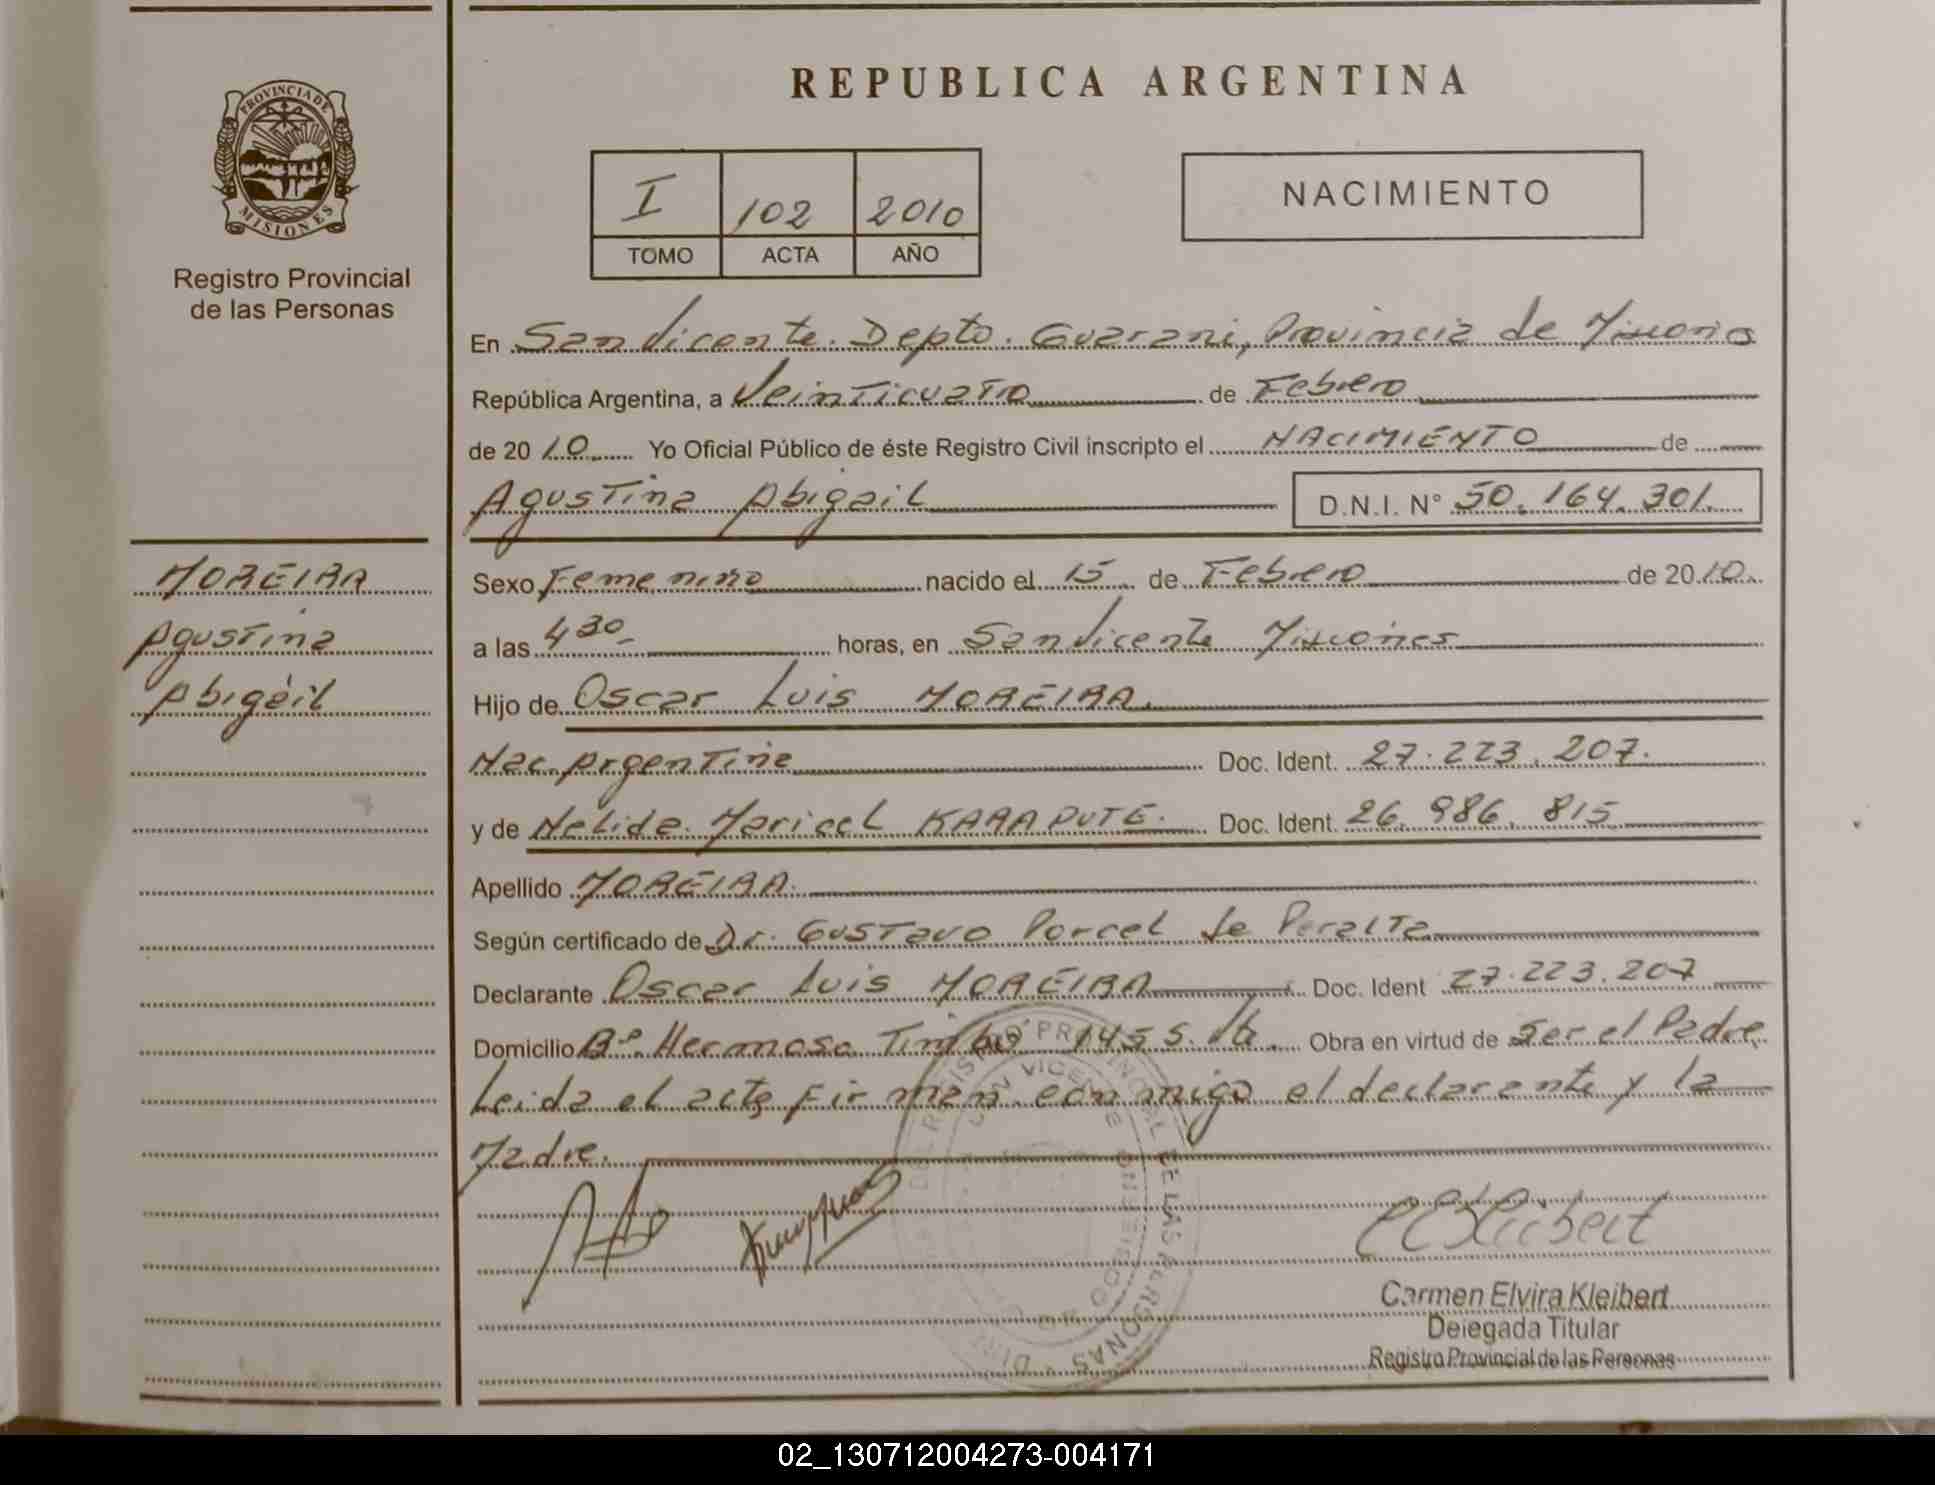 REPUBLICA ARGENTINA
PROVINCIA DE MISIONES
Registro Provincial
de las Personas
I 102 2010
TOMO ACTA AÑO
NACIMIENTO
En San Vicente. Depto. Guarani, Provincia de Misiones
República Argentina, a Veinticuatro de Febrero
de 2010 Yo Oficial Público de éste Registro Civil inscripto el NACIMIENTO de
Agustina Abigail D.N.I. N° 50.164.301.
MOREIRA
Agustina
Abigail
Sexo Femenino nacido el 15 de Febrero de 2010.
a las 4 30 horas, en San Vicente Misiones
Hijo de Oscar Luis MOREIRA.
Nac. Argentina Doc. Ident. 27.223.207.
y de Nelida Maricel KARAPUTE. Doc. Ident. 26.986.815
Apellido MOREIRA.
Según certificado de Dr. Gustavo Porcel de Peralta
Declarante Oscar Luis MOREIRA Doc. Ident 27.223.207
Domicilio Bº. Hermoso Timbó 145 S. Obra en virtud de Ser el Padre
Leida el acta firman conmigo el declarante y la
Madre.
Carmen Elvira Kleibert
Delegada Titular
Registro Provincial de las Personas
02_130712004273-004171